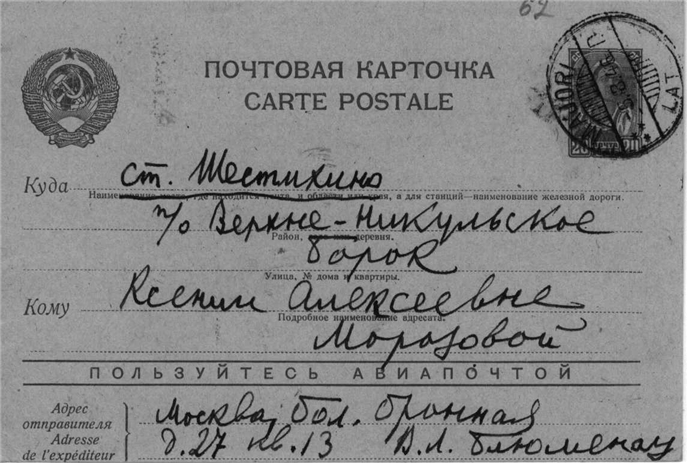 62
ПОЧТОВАЯ КАРТОЧКА
CARTE POSTALE
MAJORI
LAT
20 ПОЧТА 20
Куда ст. Шестихино
где находится почта, и области или края, а для станций—наименование железной дороги.
п/о Верхне-Никульское
Район, село или деревня.
Борок
Улица, № дома и квартиры.
Кому Ксении Алексеевне
Подробное наименование адресата.
Морозовой
ПОЛЬЗУЙТЕСЬ АВИАПОЧТОЙ
Адрес отправителя Москва, Бол. Бронная
Adresse de l'expéditeur д. 27 кв. 13 В.Л. Блюменау